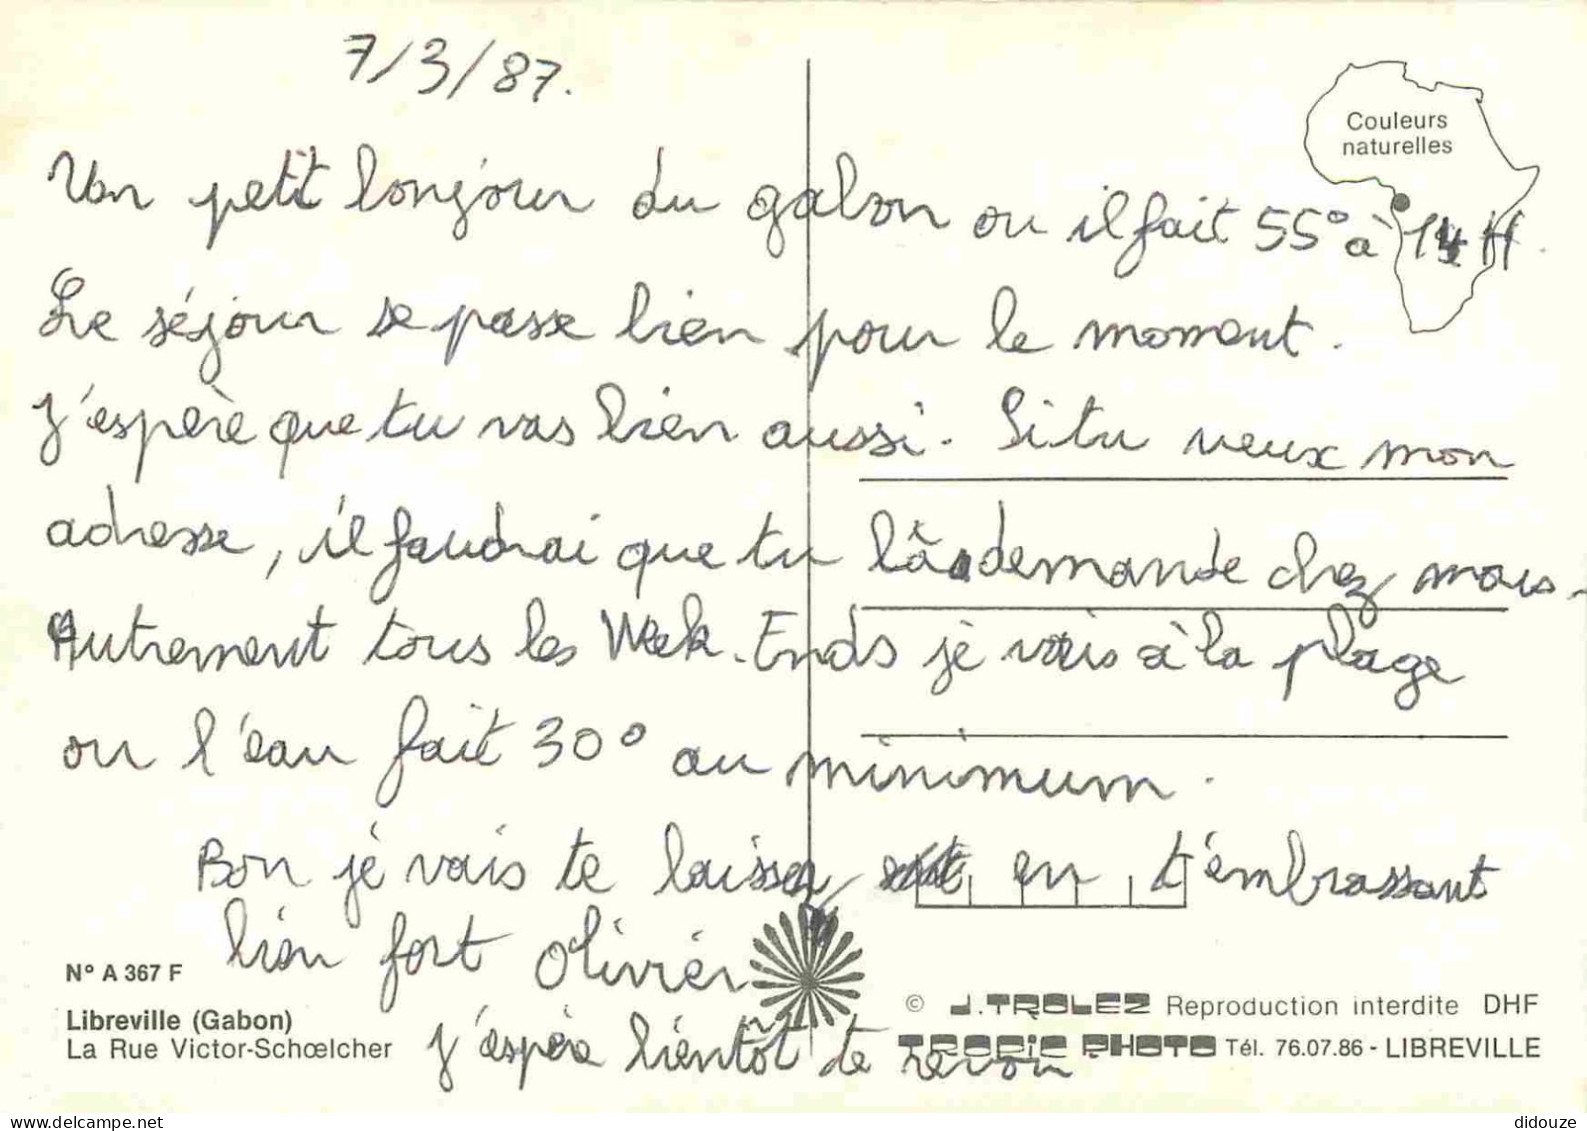 7/3/87.
Couleurs
naturelles
Un petit bonjour du gabon ou il fait 55° à 14 H.
Le séjour se passe bien pour le moment.
J'espère que tu vas bien aussi. Si tu veux mon
adresse, il faudrai que tu là demande chez mous-
Autrement tous les Week-Ends je vais à la plage
ou l'eau fait 30° au minimum.
Bon je vais te laisser en t'embrassant
bien fort Olivier
N° A 367 F
Libreville (Gabon)
La Rue Victor-Schœlcher
J'espère bientôt te revoir
© J.TROLEZ Reproduction interdite DHF
TROPIC PHOTO Tél. 76.07.86 - LIBREVILLE
delcampe.net
didouze